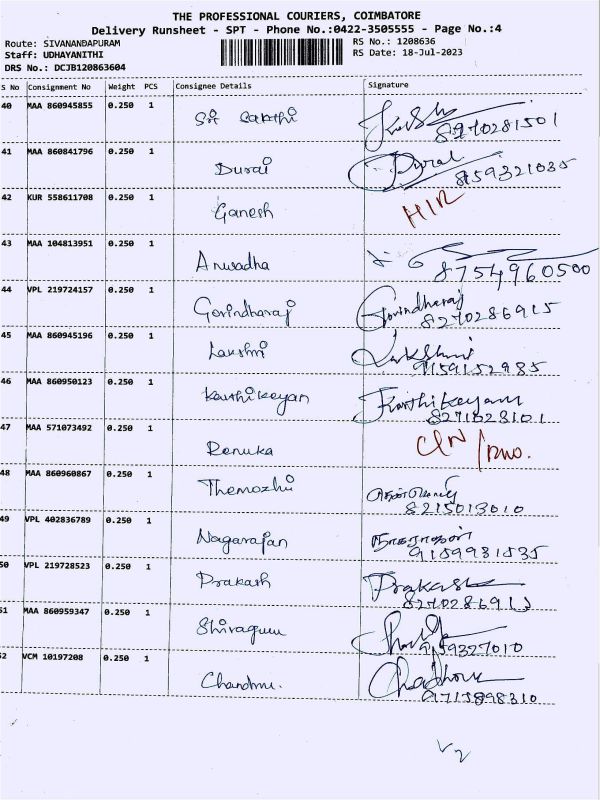 THE PROFESSIONAL COURIERS, COIMBATORE
Delivery Runsheet - SPT - Phone No.:0422-3505555 - Page No.:4
Route: SIVANANDAPURAM
RS No.: 1208636
Staff: UDHAYANITHI
RS Date: 18-Jul-2023
DRS No.: DCJB120863604
S No Consignment No Weight PCS Consignee Details Signature
40 MAA 860945855 0.250 1 Sri Sakthi
8270281501
41 MAA 860841796 0.250 1 Durai Durai
8159321035
42 KUR 558611708 0.250 1 Ganesh
43 MAA 104813951 0.250 1 Anuradha
8754960500
44 VPL 219724157 0.250 1 Govindharaj Govindharaj
8270286915
45 MAA 860945196 0.250 1 Lakshmi Lakshmi
9159152985
46 MAA 860950123 0.250 1 Karthikeyan Karthikeyan
8271823101
47 MAA 571073492 0.250 1 Renuka
48 MAA 860960867 0.250 1 Themozhi
8215013010
49 VPL 402836789 0.250 1 Nagarajan நாகராஜன்
9159931535
50 VPL 219728523 0.250 1 Prakash Prakash
51 MAA 860959347 0.250 1 Shivaguru
9159327010
52 VCM 10197208 0.250 1
9715898310